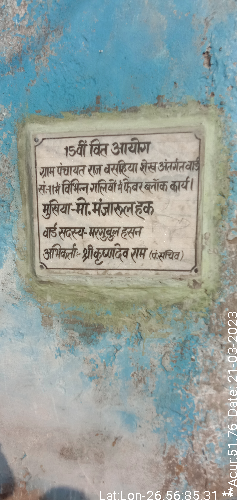 15वीं वित आयोग
ग्राम पंचायत राज बसहिया शेख अंतर्गत वार्ड
सं-11 में विभिन्न गलियों में फेवर ब्लॉक कार्य।
मुखिया-मो. मंजारूल हक
वार्ड सदस्य-मरगुबुल हसन
अभिकर्ता:-श्री कृष्णदेव राम (पं.सचिव)
Lat:Lon-26.56,85.31 **Acur:51.76 Date: 21-03-2023